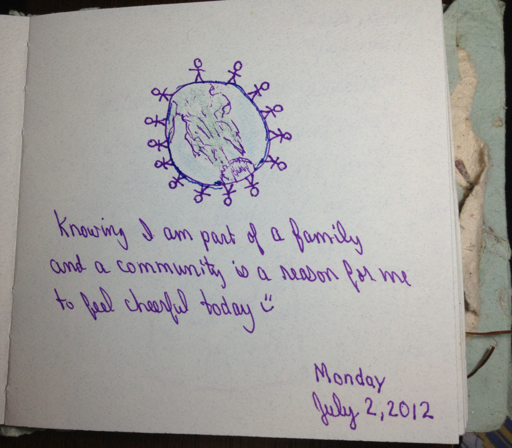 Knowing I am part of a family
and a community is a reason for me
to feel cheerful today
Monday
July 2, 2012